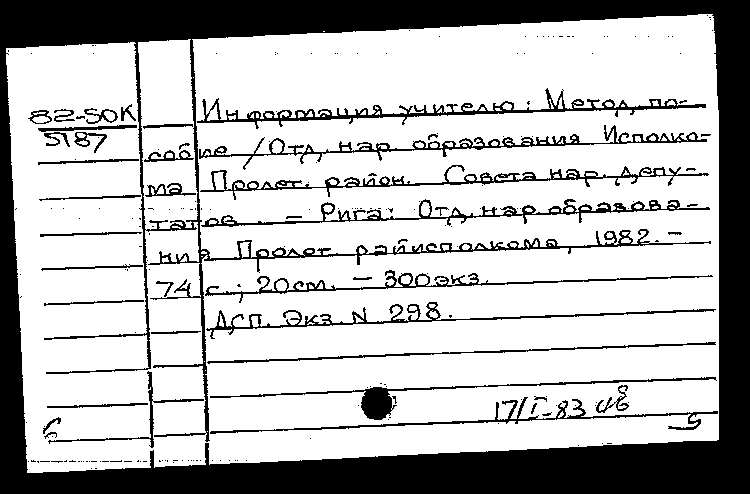 82-50К
5187
Информация учителю: Метод. по-
собие / Отд. нар. образования Исполко-
ма Пролет. район. Совета нар. депу-
татов. - Рига: Отд. нар. образова-
ния Пролет. райисполкома, 1982. -
74 с.; 20 см. - 300 экз.
ДСП. Экз. N 298.
17/I-83